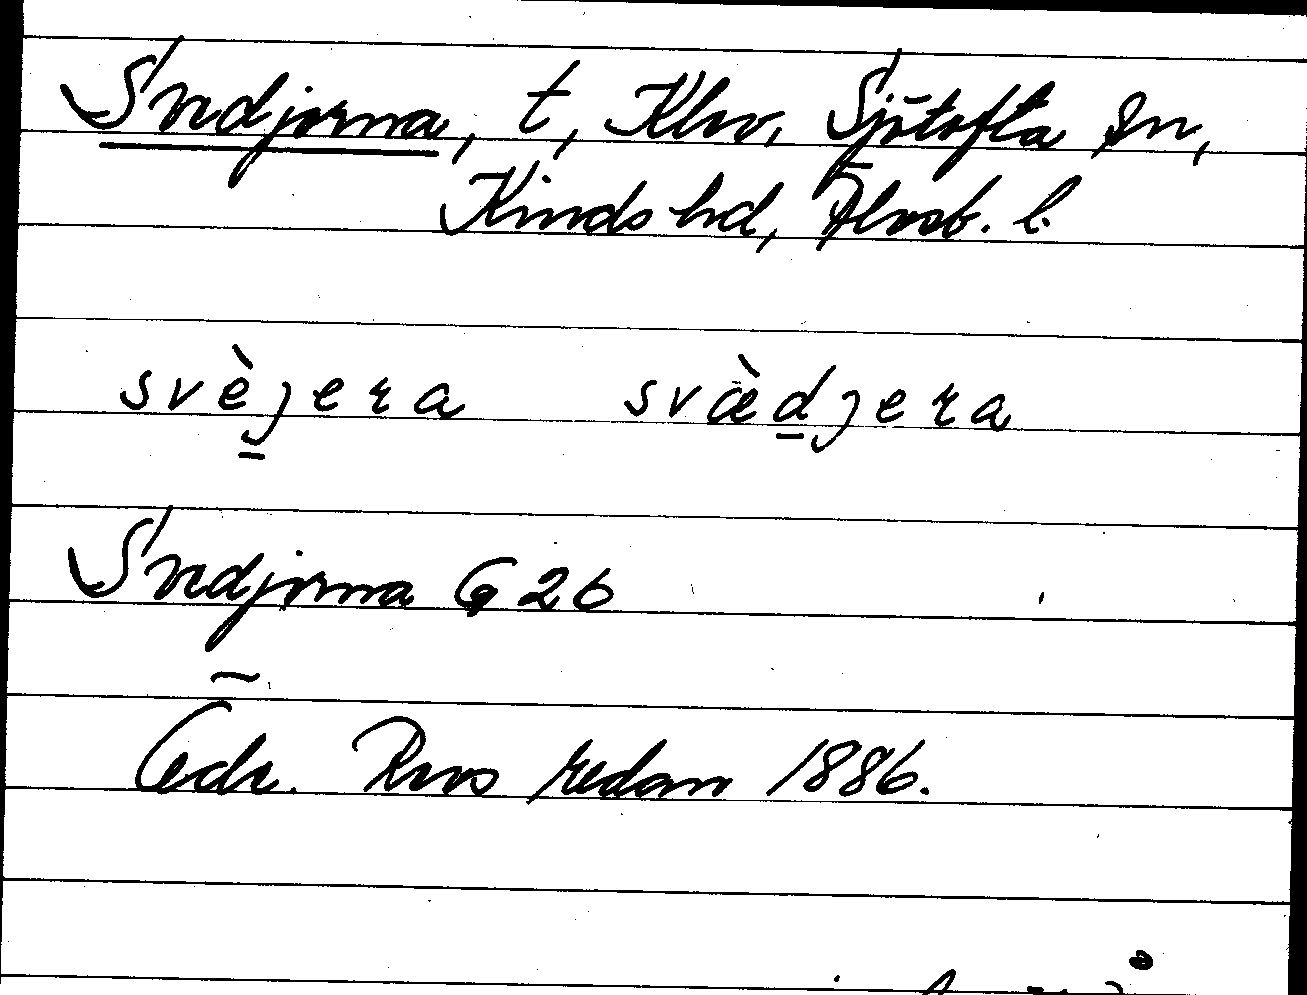 Svedjorna, t, Klev, Sjötofta sn,
Kinds hd, Älvsb. l.
svèjera svæ̀djera
Svedjorna G 26
Ödr. Revs redan 1886.